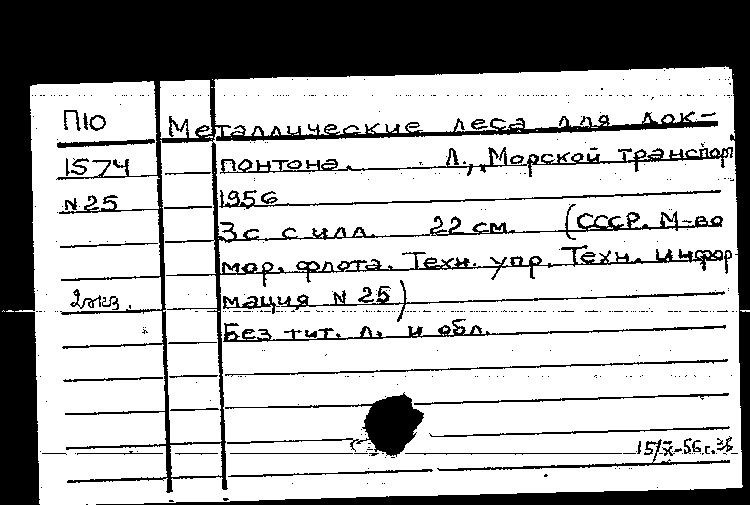 П10 Металлические леса для док-
1574 понтона. Л., "Морской транспорт"
N25 1956
3 с. с илл. 22 см. (СССР. М-во
мор. флота. Техн. упр. Техн. инфор
2 экз. мация N 25)
Без тит. л. и обл.
15/X-56 г.